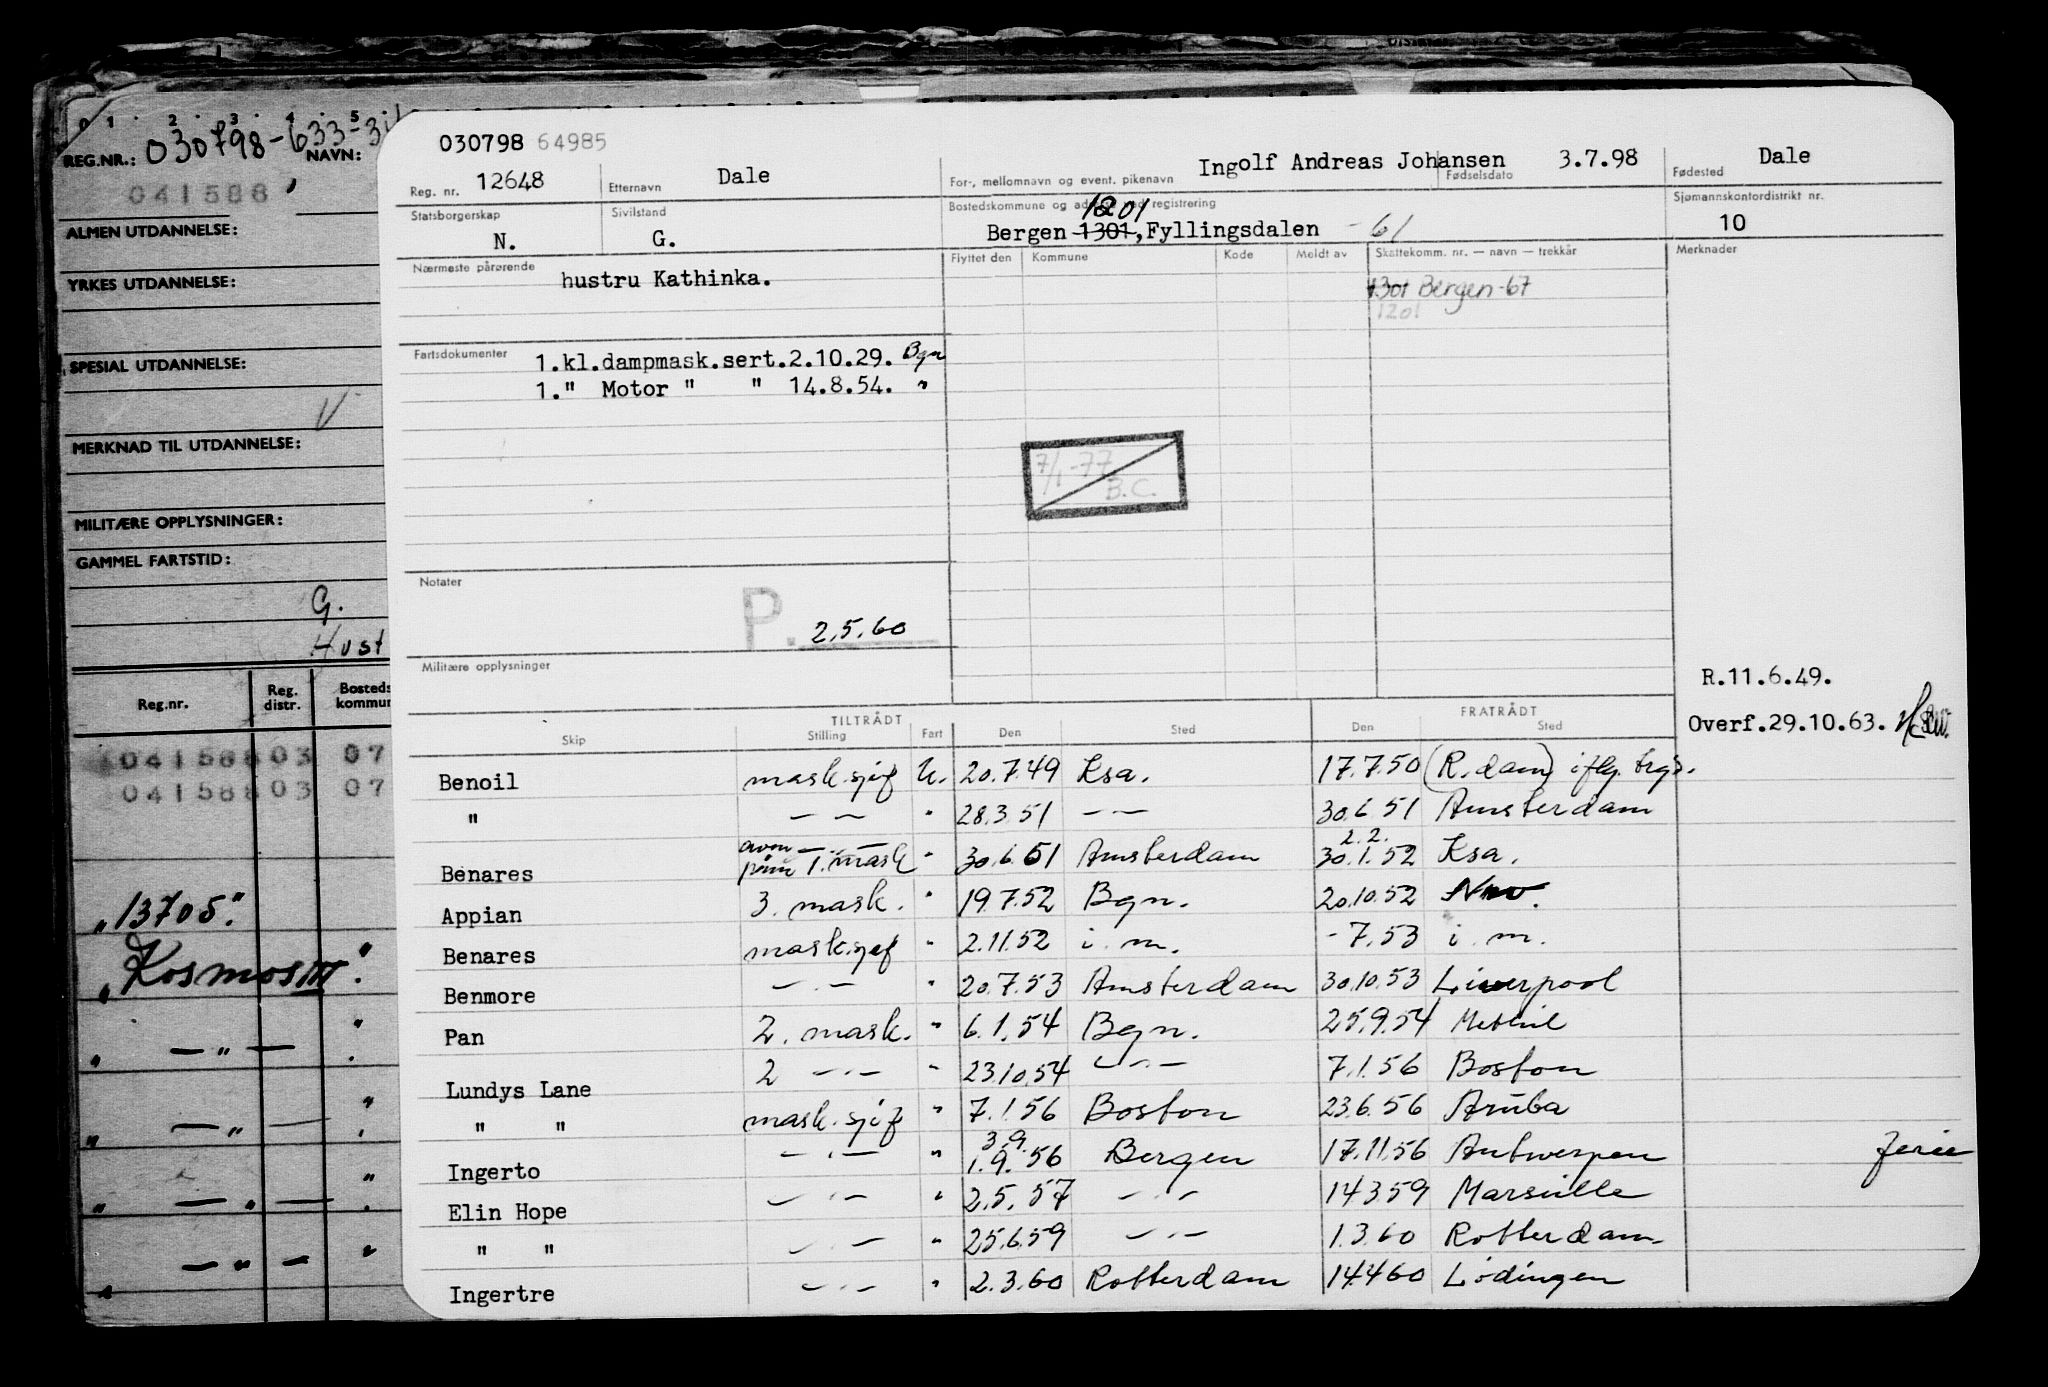 0 1 2 3 4 5
REG.NR.: 030798-633-31
NAVN:
041588
ALMEN UTDANNELSE:
YRKES UTDANNELSE:
SPESIAL UTDANNELSE:
V
MERKNAD TIL UTDANNELSE:
MILITÆRE OPPLYSNINGER:
GAMMEL FARTSTID:
G.
Hust
Reg.nr. Reg. distr. Bosteds kommun
04158803 07
04158803 07
„13705."
„Kosmos III".
030798 64985
Reg. nr. 12648 Etternavn Dale For-, mellomnavn og event. pikenavn Ingolf Andreas Johansen Fødselsdato 3.7.98 Fødested Dale
Statsborgerskap N. Sivilstand G. Bostedskommune og adresse ved registrering 1201 Bergen 1301, Fyllingsdalen -61 Sjømannskontordistrikt nr. 10
Nærmeste pårørende hustru Kathinka.
Flyttet den Kommune Kode Meldt av Skattekomm. nr. — navn — trekkår Merknader
1301 Bergen-67
1201
Fartsdokumenter 1.kl.dampmask.sert.2.10.29. Bgn
1." Motor " " 14.8.54. "
7/1-77
B.C.
Notater
P. 2.5.60
Militære opplysninger
R.11.6.49.
Overf.29.10.63.
TILTRÅDT FRATRÅDT
Skip Stilling Fart Den Sted Den Sted
Benoil mask.sjef U. 20.7.49 Ksa. 17.7.50 (R.dam) iflg. brgs.
" — — " 28.3.51 — — 30.6.51 Amsterdam
Benares avm — . — påm 1. mask " 30.6.51 Amsterdam 2.2. 30.1.52 Ksa.
Appian 3. mask. " 19.7.52 Bgn. 20.10.52
Benares mask.sjef " 2.11.52 i. m. - 7.53 i. m.
Benmore — . — " 20.7.53 Amsterdam 30.10.53 Liverpool
Pan 2. mask. " 6.1.54 Bgn. 25.9.54 Methil
Lundys Lane 2 — . — " 23.10.54 — . — 7.1.56 Boston
" " mask.sjef " 7.1.56 Boston 23.6.56 Aruba
Ingerto — . — " 3.9. 1.9.56 Bergen 17.11.56 Antwerpen Ferie
Elin Hope — . — " 2.5.57 — . — 14.3.59 Marseille
" " — . — " 25.6.59 — . — 1.3.60 Rotterdam
Ingertre — . — " 2.3.60 Rotterdam 14.4.60 Lødingen